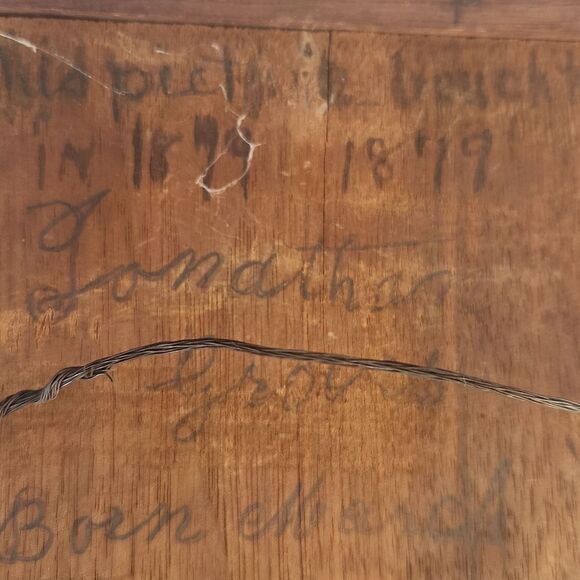 his picture bought
in 1879 1879
Jonathan
Born March